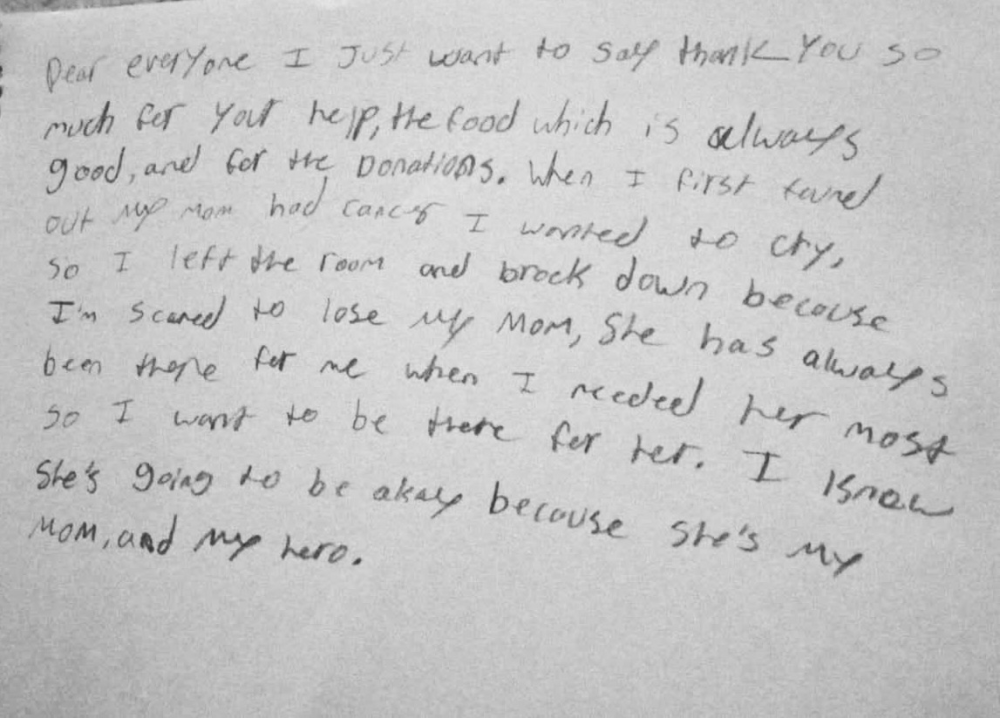 Dear everyone I Just want to say thank You so
much for your help, the food which is always
good, and for the Donations. When I first found
out my mom had cancer I wanted to cry,
so I left the room and brock down because
I'm scared to lose my Mom, She has always
been there for me when I needed her most
so I want to be there for her. I know
She's going to be akay because she's my
Mom, and my hero.